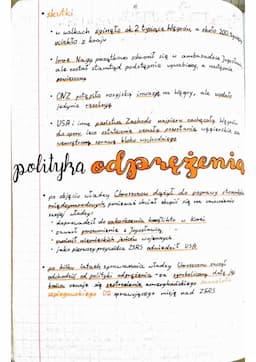 skutki
• w walkach zginęło ok. 2 tysiące Węgrów, a około 200 tysięcy
uciekło z kraju
• Imre Nagy początkowo schronił się w ambasadzie Jugosławii,
ale został stamtąd podstępnie wywabiony, a następnie
powieszony
• ONZ potępiła rosyjską inwazję na Węgry, ale wydała
jedynie rezolucję
• USA i inne państwa Zachodu najpierw zachęcały Węgrów
do oporu, lecz ostatecznie uznały powstanie węgierskie za
wewnętrzną sprawę bloku wschodniego
polityka odprężenia
• po objęciu władzy Chruszczow dążył do poprawy stosunków
międzynarodowych, ponieważ chciał skupić się na umocnieniu
swojej władzy:
- doprowadził do zakończenia konfliktu w Korei
- zawarł porozumienie z Jugosławią
- zwolnił niemieckich jeńców wojennych
- jako pierwszy przywódca ZSRS odwiedził USA
• po kilku latach sprawowania władzy Chruszczow zaczął
odchodzić od polityki odprężenia - za symboliczną datę jej
końca uważa się zestrzelenie amerykańskiego samolotu
szpiegowskiego U2 sprawującego misję nad ZSRS